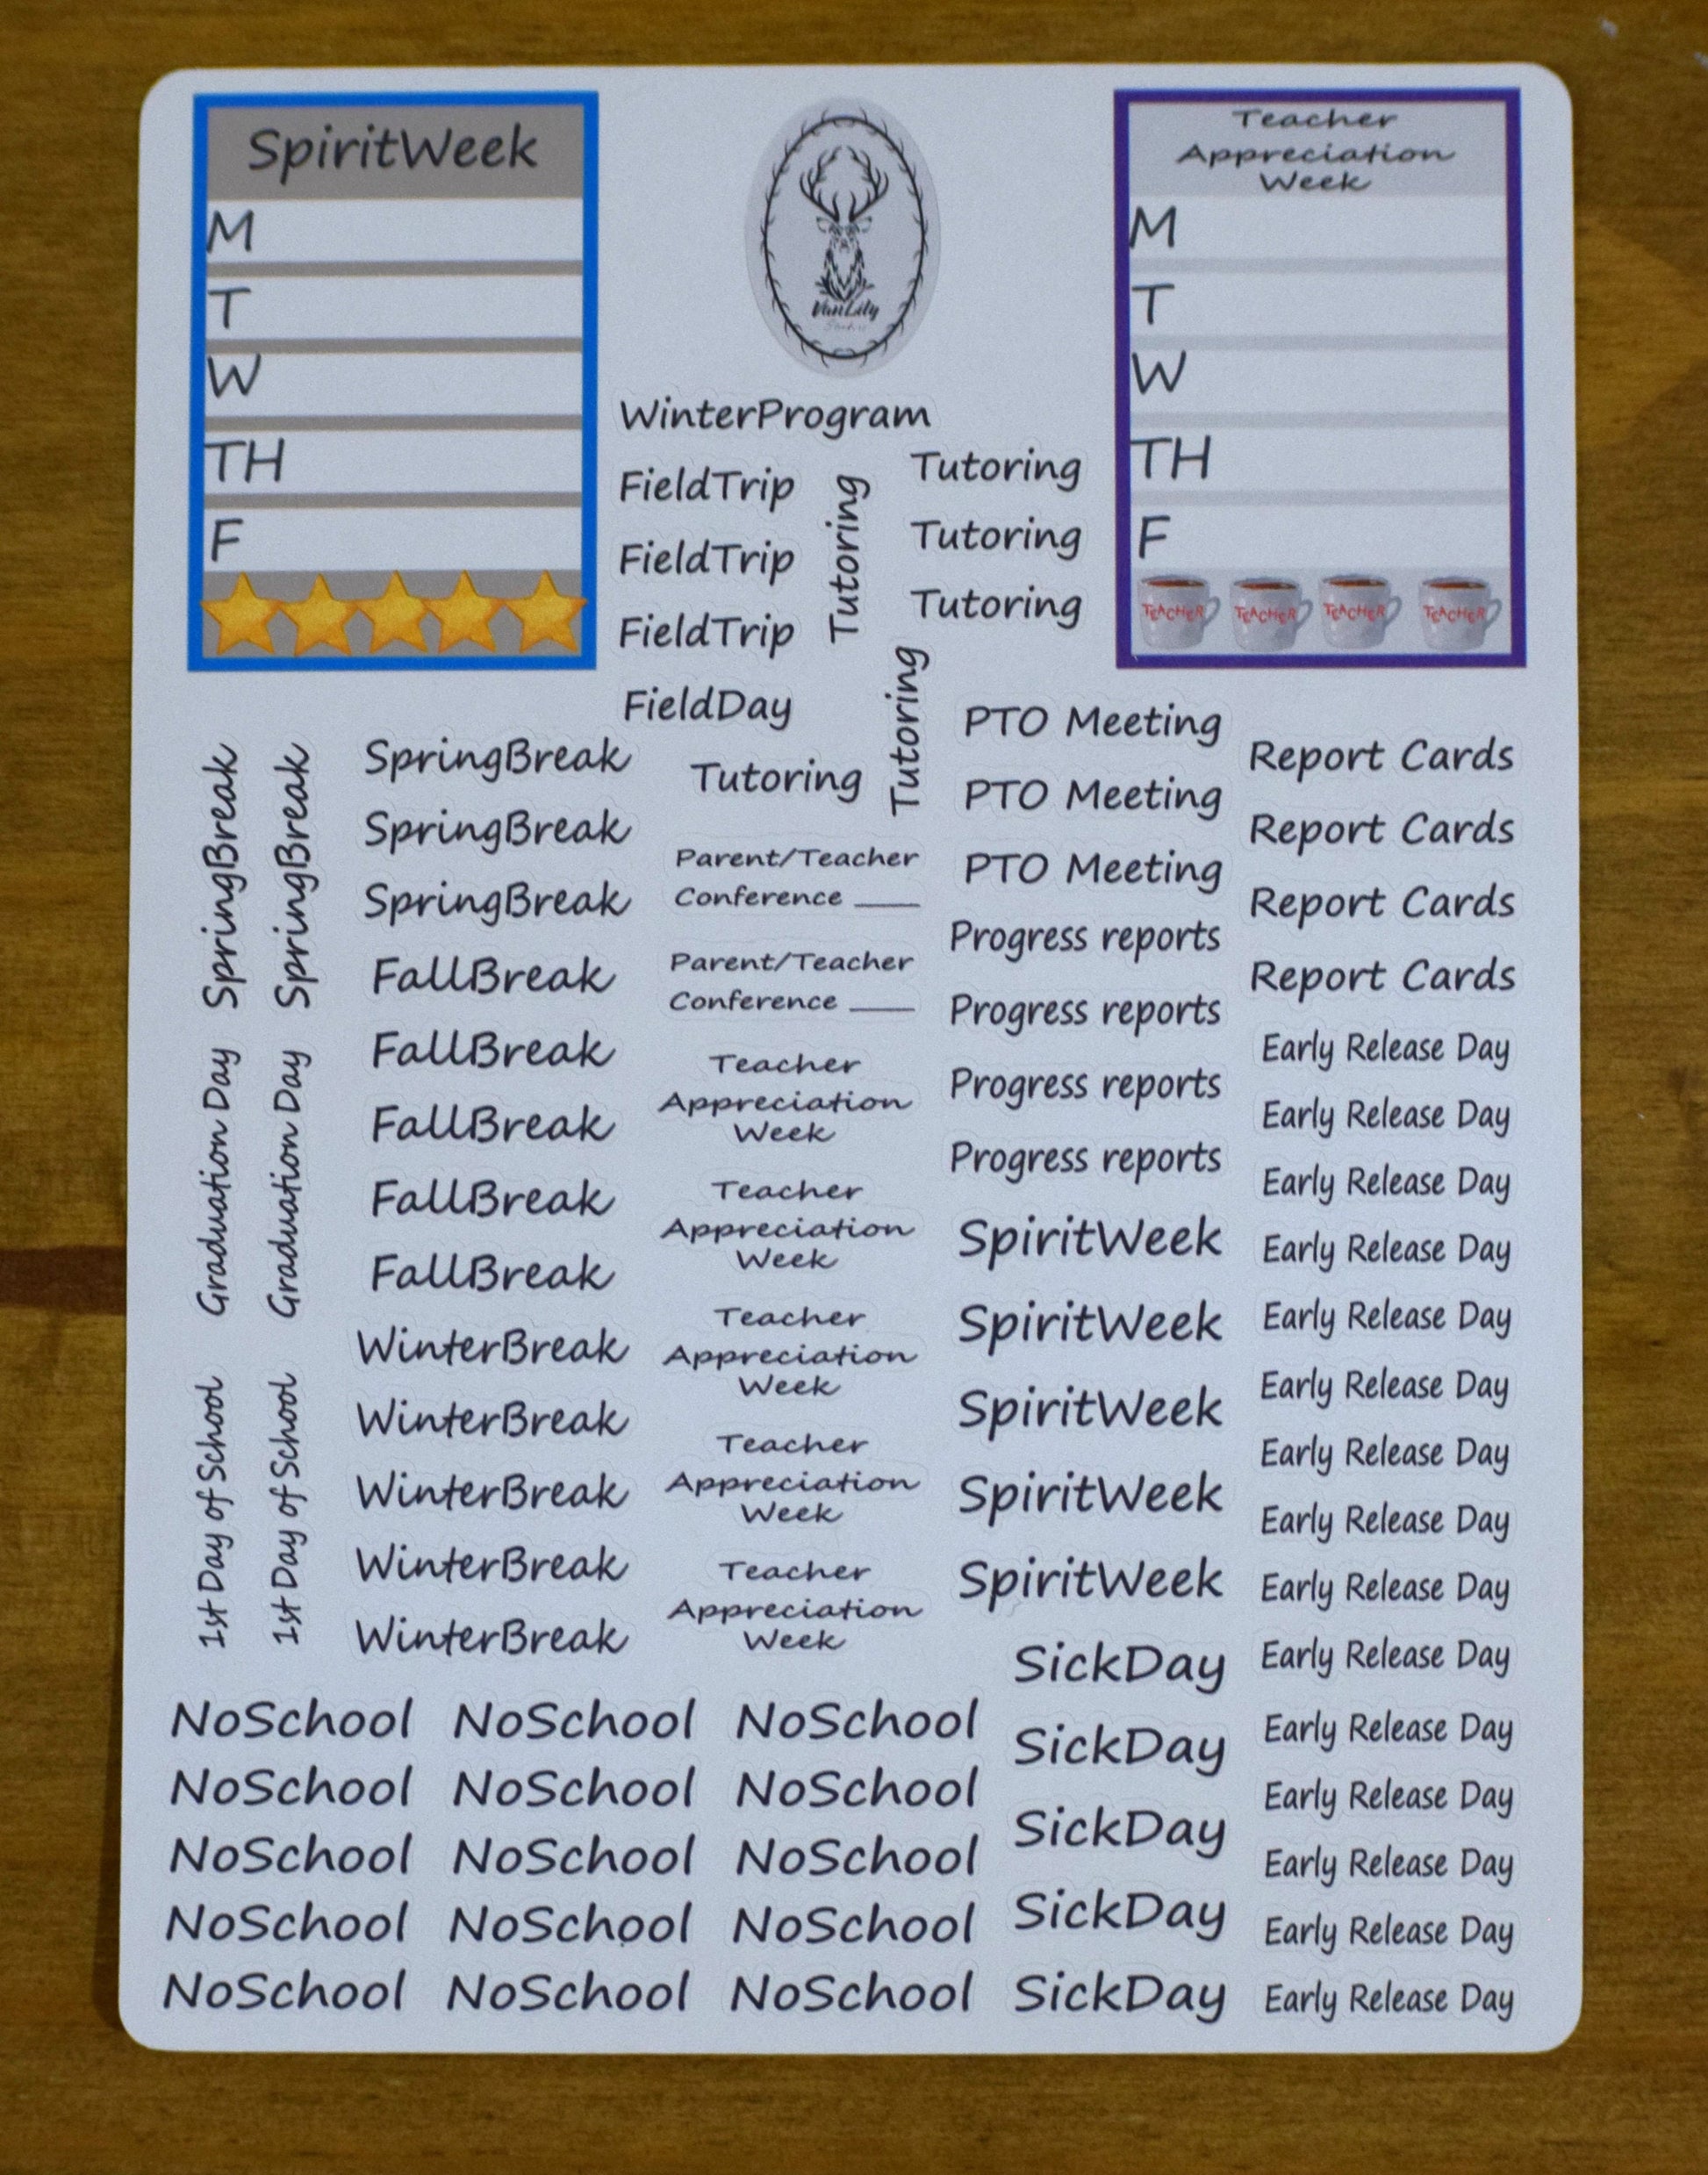 SpiritWeek
M
T
W
TH
F
VanLily
Teacher
Appreciation
Week
M
T
W
TH
F
TEACHER
TEACHER
TEACHER
TEACHER
WinterProgram
FieldTrip
FieldTrip
FieldTrip
FieldDay
Tutoring
Tutoring
Tutoring
Tutoring
Tutoring
Tutoring
SpringBreak
SpringBreak
Graduation Day
Graduation Day
1st Day of School
1st Day of School
SpringBreak
SpringBreak
SpringBreak
FallBreak
FallBreak
FallBreak
FallBreak
FallBreak
WinterBreak
WinterBreak
WinterBreak
WinterBreak
WinterBreak
Parent/Teacher
Conference ____
Parent/Teacher
Conference ____
Teacher
Appreciation
Week
Teacher
Appreciation
Week
Teacher
Appreciation
Week
Teacher
Appreciation
Week
Teacher
Appreciation
Week
PTO Meeting
PTO Meeting
PTO Meeting
Progress reports
Progress reports
Progress reports
Progress reports
SpiritWeek
SpiritWeek
SpiritWeek
SpiritWeek
SpiritWeek
SickDay
SickDay
SickDay
SickDay
SickDay
Report Cards
Report Cards
Report Cards
Report Cards
Early Release Day
Early Release Day
Early Release Day
Early Release Day
Early Release Day
Early Release Day
Early Release Day
Early Release Day
Early Release Day
Early Release Day
Early Release Day
Early Release Day
Early Release Day
Early Release Day
Early Release Day
NoSchool NoSchool NoSchool
NoSchool NoSchool NoSchool
NoSchool NoSchool NoSchool
NoSchool NoSchool NoSchool
NoSchool NoSchool NoSchool